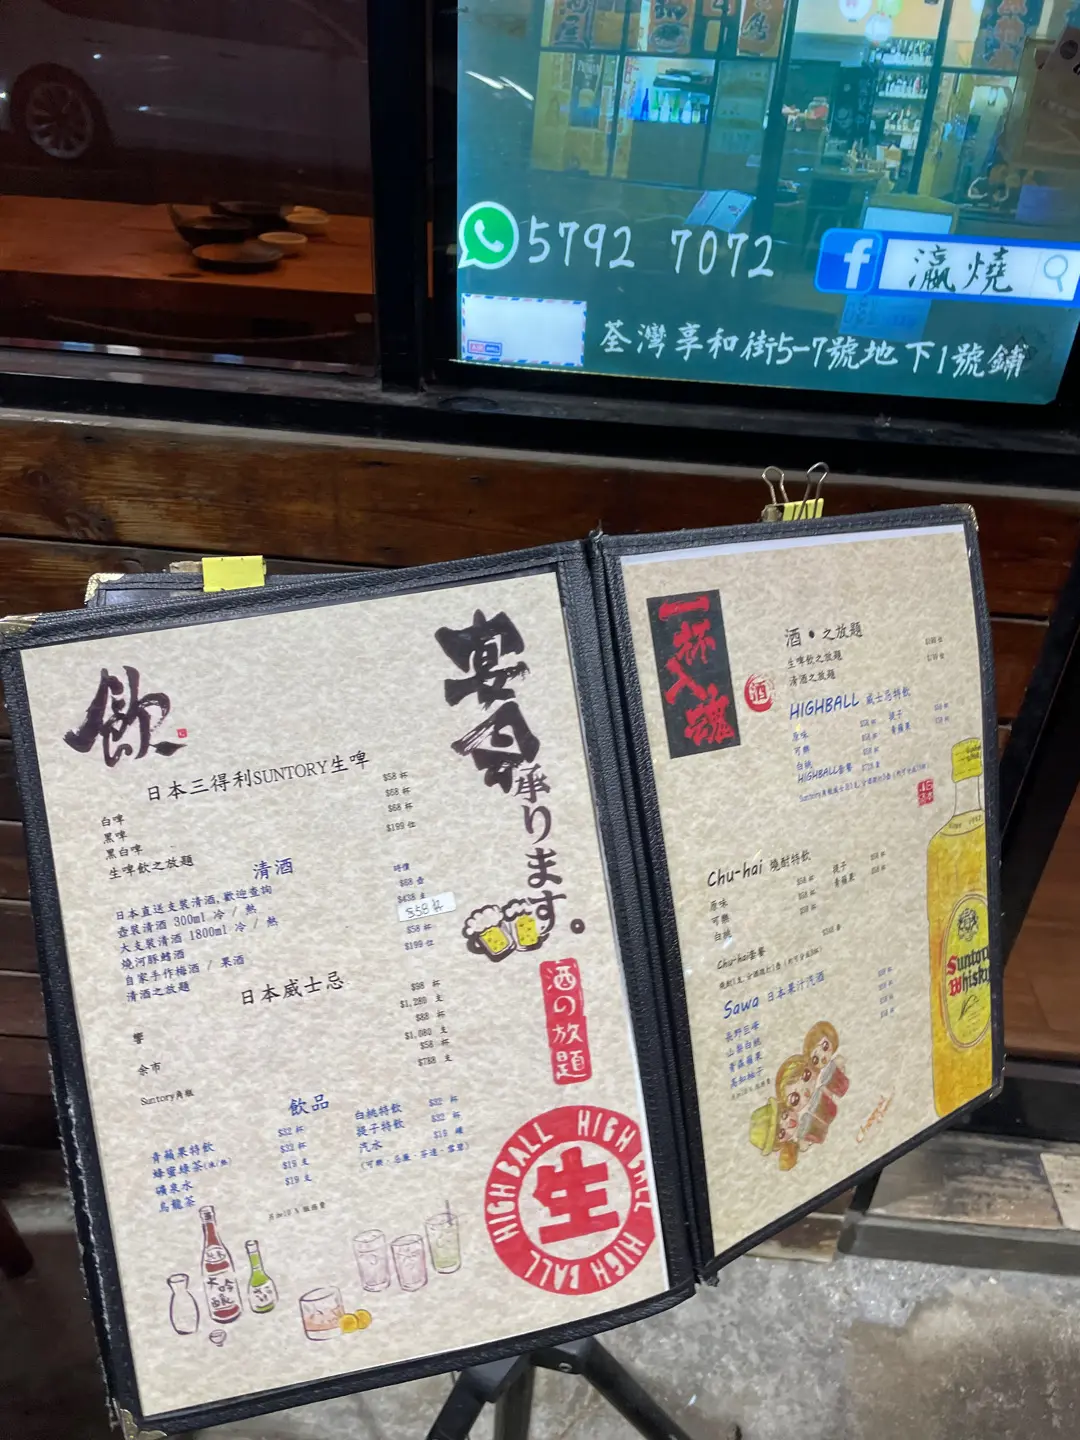 5792 7072
f 瀛燒
荃灣享和街5-7號地下1號鋪
飲
宴会承ります。
日本三得利SUNTORY生啤
白啤 $58 杯
黑啤 $68 杯
黑白啤 $68 杯
生啤飲之放題 $199 位
清酒
日本直送支裝清酒,歡迎查詢 時價
壺裝清酒 300ml 冷 / 熱 $68 壺
大支裝清酒 1800ml 冷 / 熱 $438 支
燒河豚鰭酒 $58 杯
自家手作梅酒 / 果酒 $58 杯
清酒之放題 $199 位
日本威士忌
響 $98 杯
$1,280 支
余市 $88 杯
$1,080 支
Suntory角瓶 $58 杯
$788 支
飲品
青蘋果特飲 $32 杯
蜂蜜綠茶(凍/熱) $32 杯
礦泉水 $19 支
烏龍茶 $19 支
白桃特飲 $32 杯
提子特飲 $32 杯
汽水 $19 罐
酒の放題
HIGH BALL HIGH BALL HIGH BALL
生
一杯入魂
酒
酒・之放題
生啤飲之放題
清酒之放題
HIGHBALL 威士忌特飲
原味
可樂
白桃
提子
青蘋果
HIGHBALL套餐
Chu-hai 燒酎特飲
原味
可樂
白桃
提子
青蘋果
Chu-hai套餐
Sawa 日本果汁汽酒
長野巨峰
山梨白桃
青森蘋果
高知柚子
Suntory
Whisky